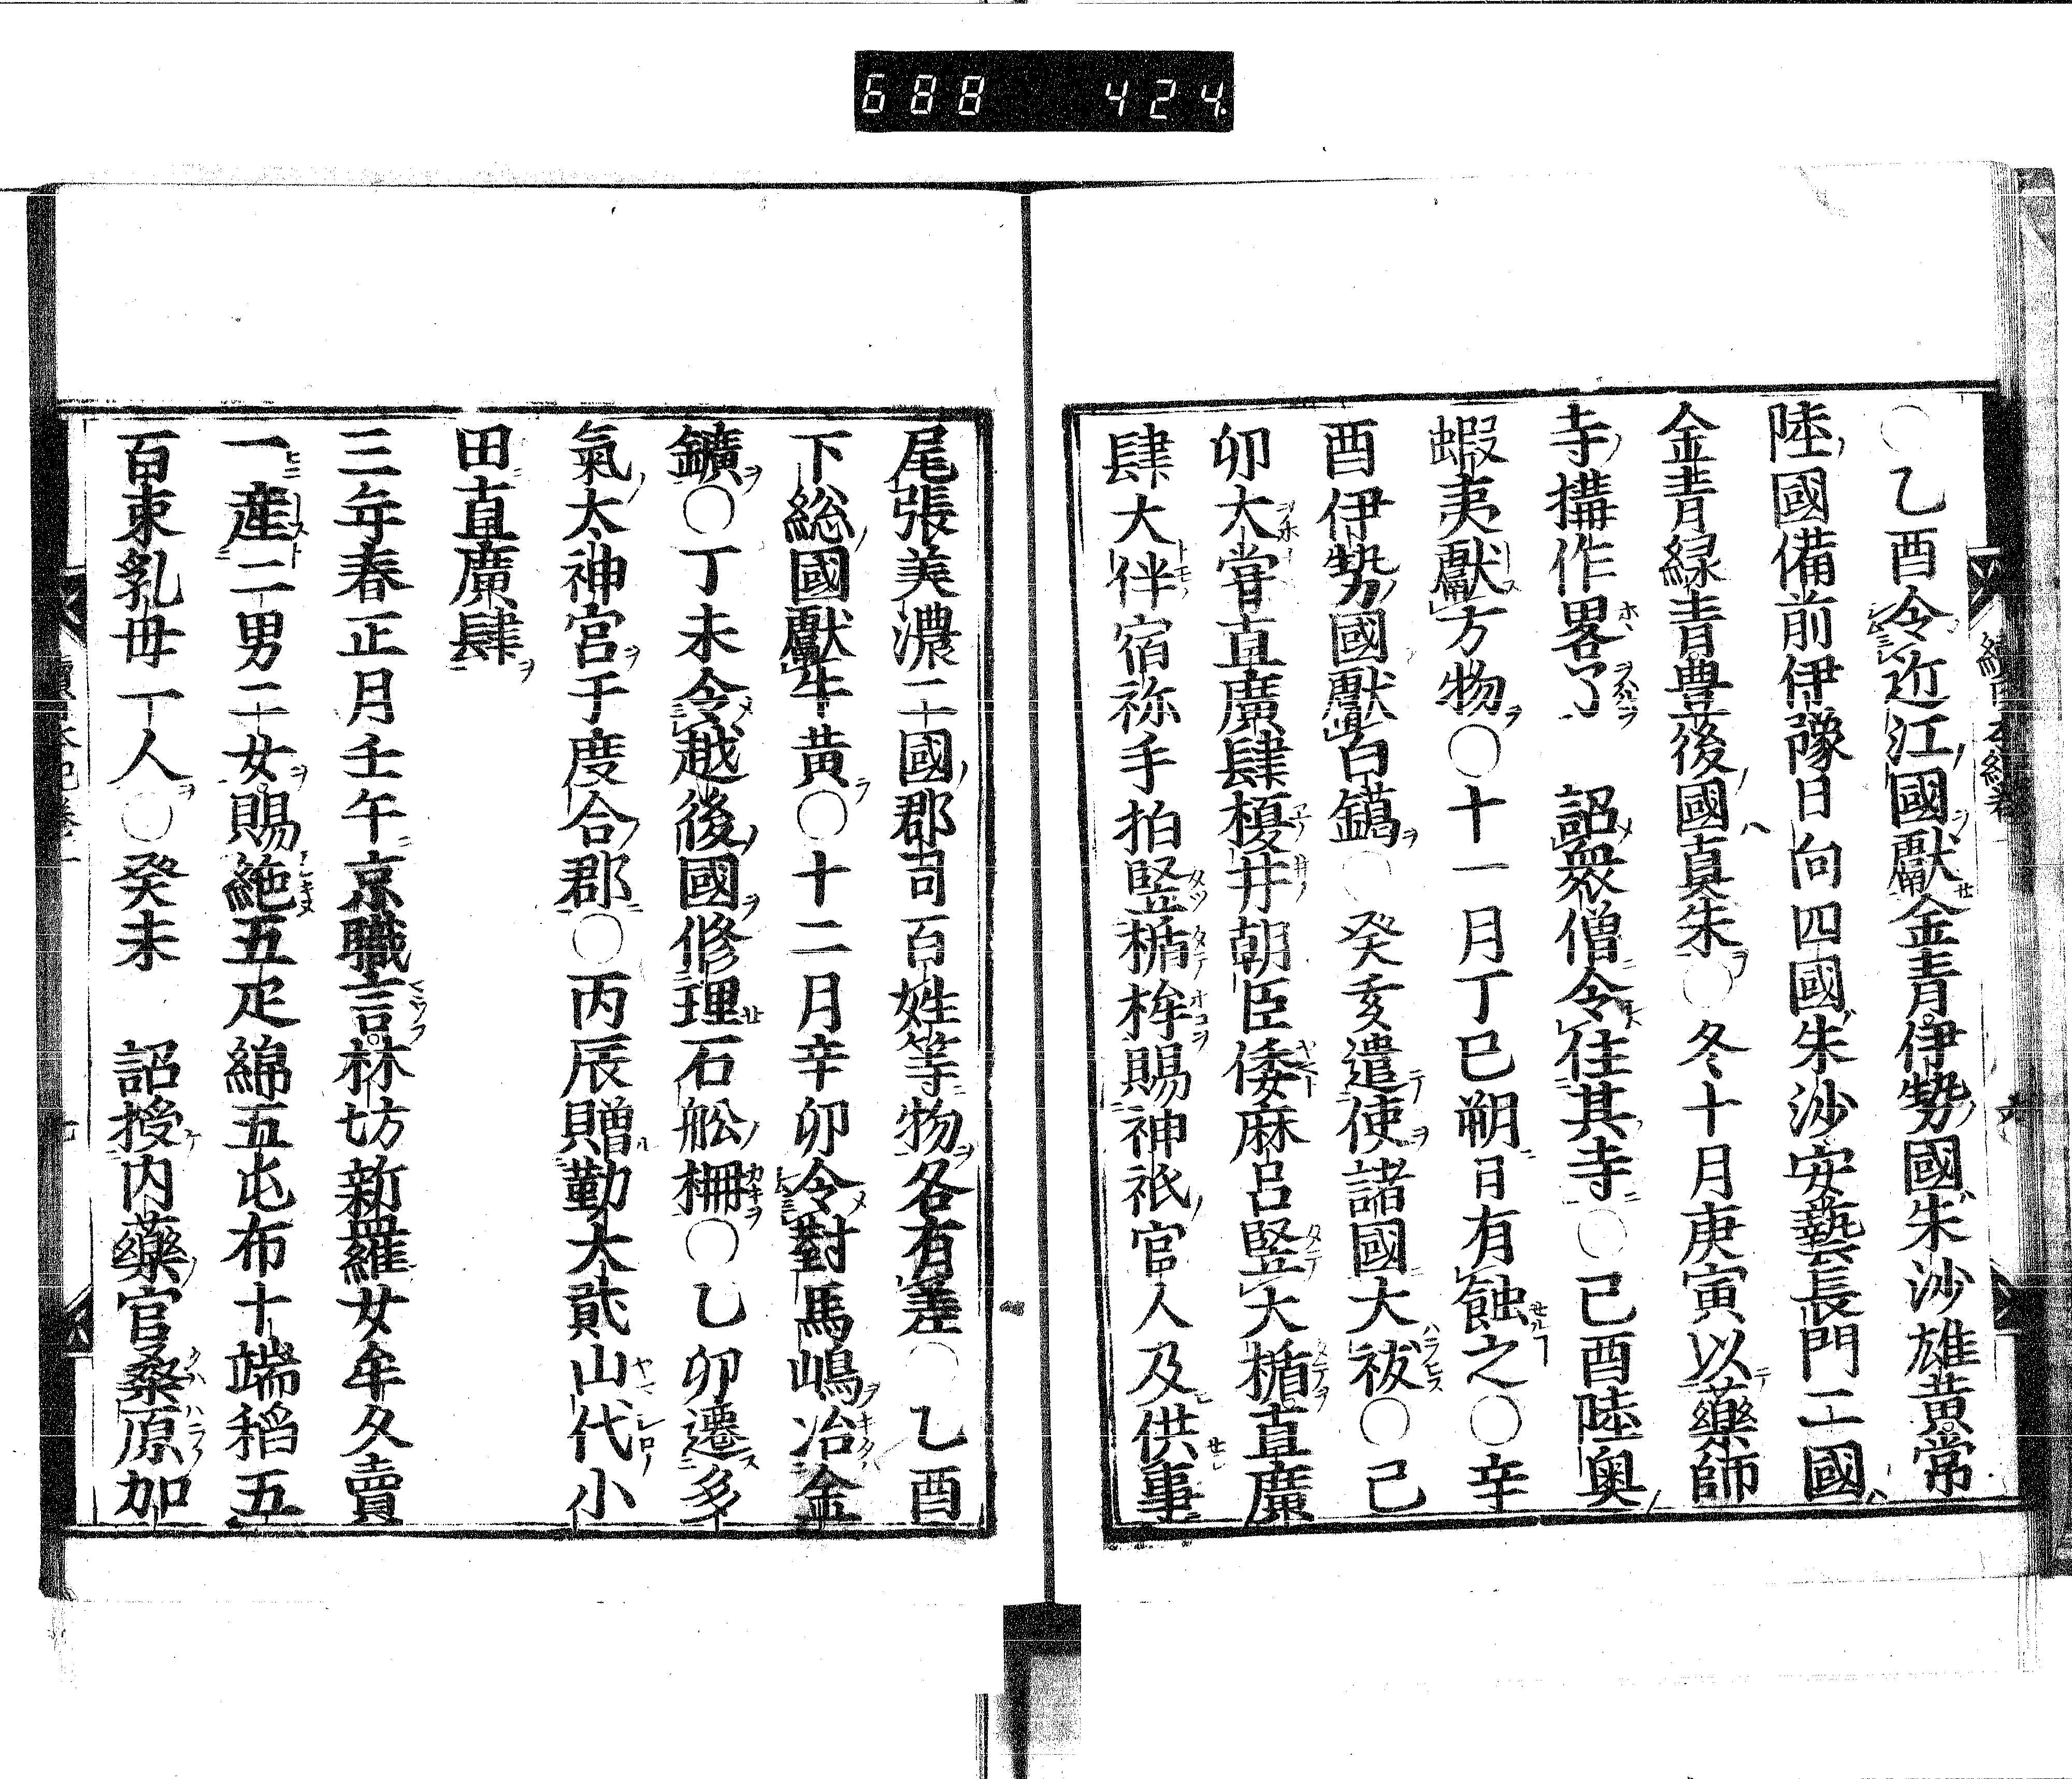 688 424
○乙酉令近江國獻金青伊勢國朱沙雄黄常
陸國備前伊豫日向四國朱沙安藝長門二國
金青緑青豊後國真朱○冬十月庚寅以藥師
寺搆作畧了 詔衆僧令住其寺○己酉陸奥
蝦夷獻方物○十一月丁巳朔日有蝕之○辛
酉伊勢國獻白鑞○癸亥遣使諸國大祓○己
卯大甞直廣肆榎井朝臣倭麻呂竪大楯直廣
肆大伴宿祢手拍竪楯桙賜神祇官人及供事
尾張美濃二國郡司百姓等物各有差○乙酉
下総國獻牛黄○十二月辛卯令對馬嶋冶金
鑛○丁未令越後國修理石舩柵○乙卯遷多
氣太神宮于度合郡○丙辰贈勤大貳山代小
田直廣肆
三年春正月壬午京職言林坊新羅女牟久賣
一産二男二女賜絁五疋綿五屯布十端稻五
百束乳母一人○癸未 詔授内藥官桑原加